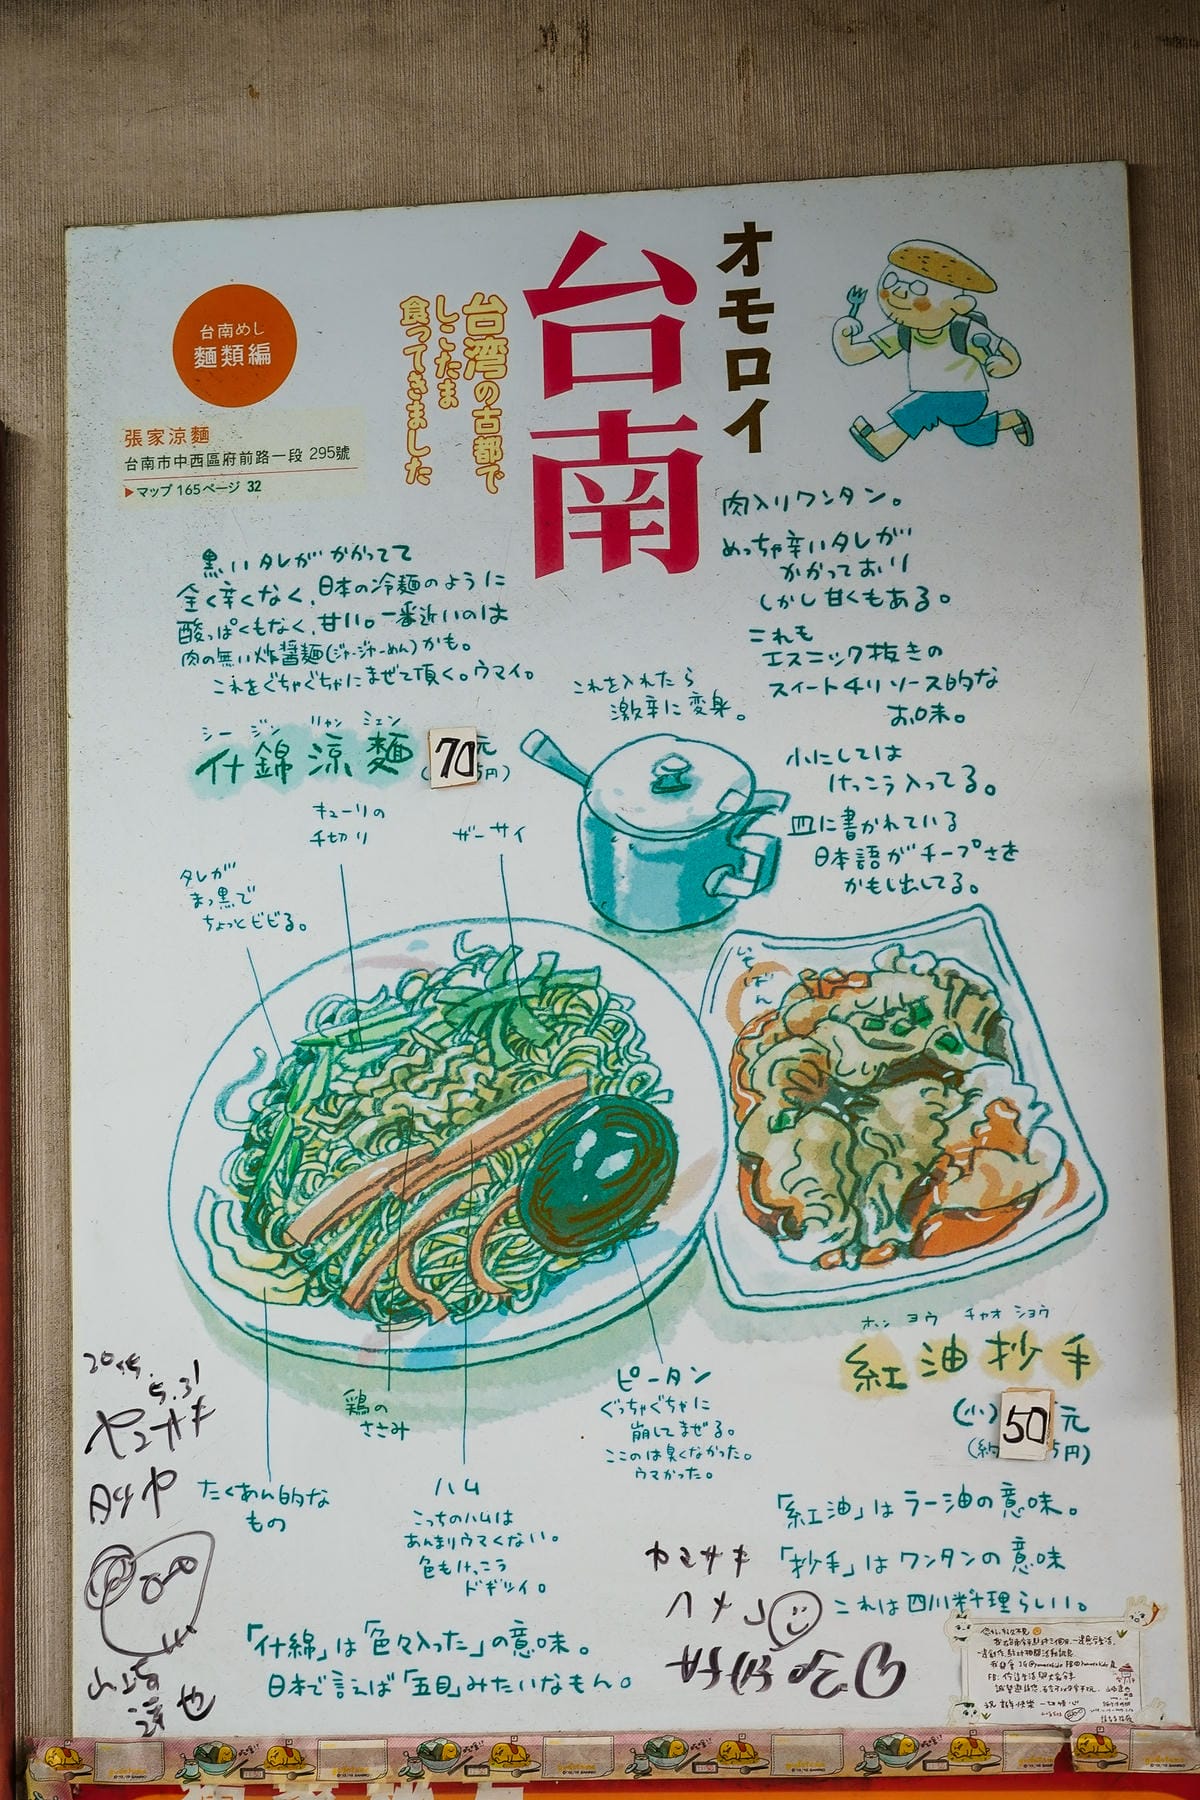 オモロイ
台南
台湾の古都で
しこたま
食ってきました
台南めし
麵類編
張家涼麵
台南市中西區府前路一段 295號
▶マップ 165ページ 32
黒いタレが かかってて
全く辛くなく、日本の冷麺のように
酸っぱくもなく、甘い。一番近いのは
肉の無い炸醤麺(ジャージャーめん)かも。
これをぐちゃぐちゃにまぜて頂く。ウマイ。
シー ジン リャン ミェン
什錦涼麵 70元
円)
肉入りワンタン。
めっちゃ辛いタレが
かかっており
しかし甘くもある。
これも
エスニック抜きの
スイートチリソース的な
お味。
これを入れたら
激辛に変身。
小にしては
けっこう入ってる。
皿に書かれている
日本語がチープさを
かもし出してる。
キューリの
千切り
ザーサイ
タレが
まっ黒で
ちょっとビビる。
いちばん
ホン ヨウ チャオ ショウ
紅油抄手
(小) 50元
(約 5円)
ピータン
ぐっちゃぐちゃに
崩してまぜる。
ここのは臭くなかった。
ウマかった。
鶏の
ささみ
たくあん的な
もの
ハム
こっちのハムは
あんまりウマくない。
色もけっこう
ドギツイ。
「紅油」はラー油の意味。
「抄手」はワンタンの意味
これは四川料理らしい。
「什錦」は「色々入った」の意味。
日本で言えば「五目」みたいなもん。
5.31
ヤマサキ
好好吃